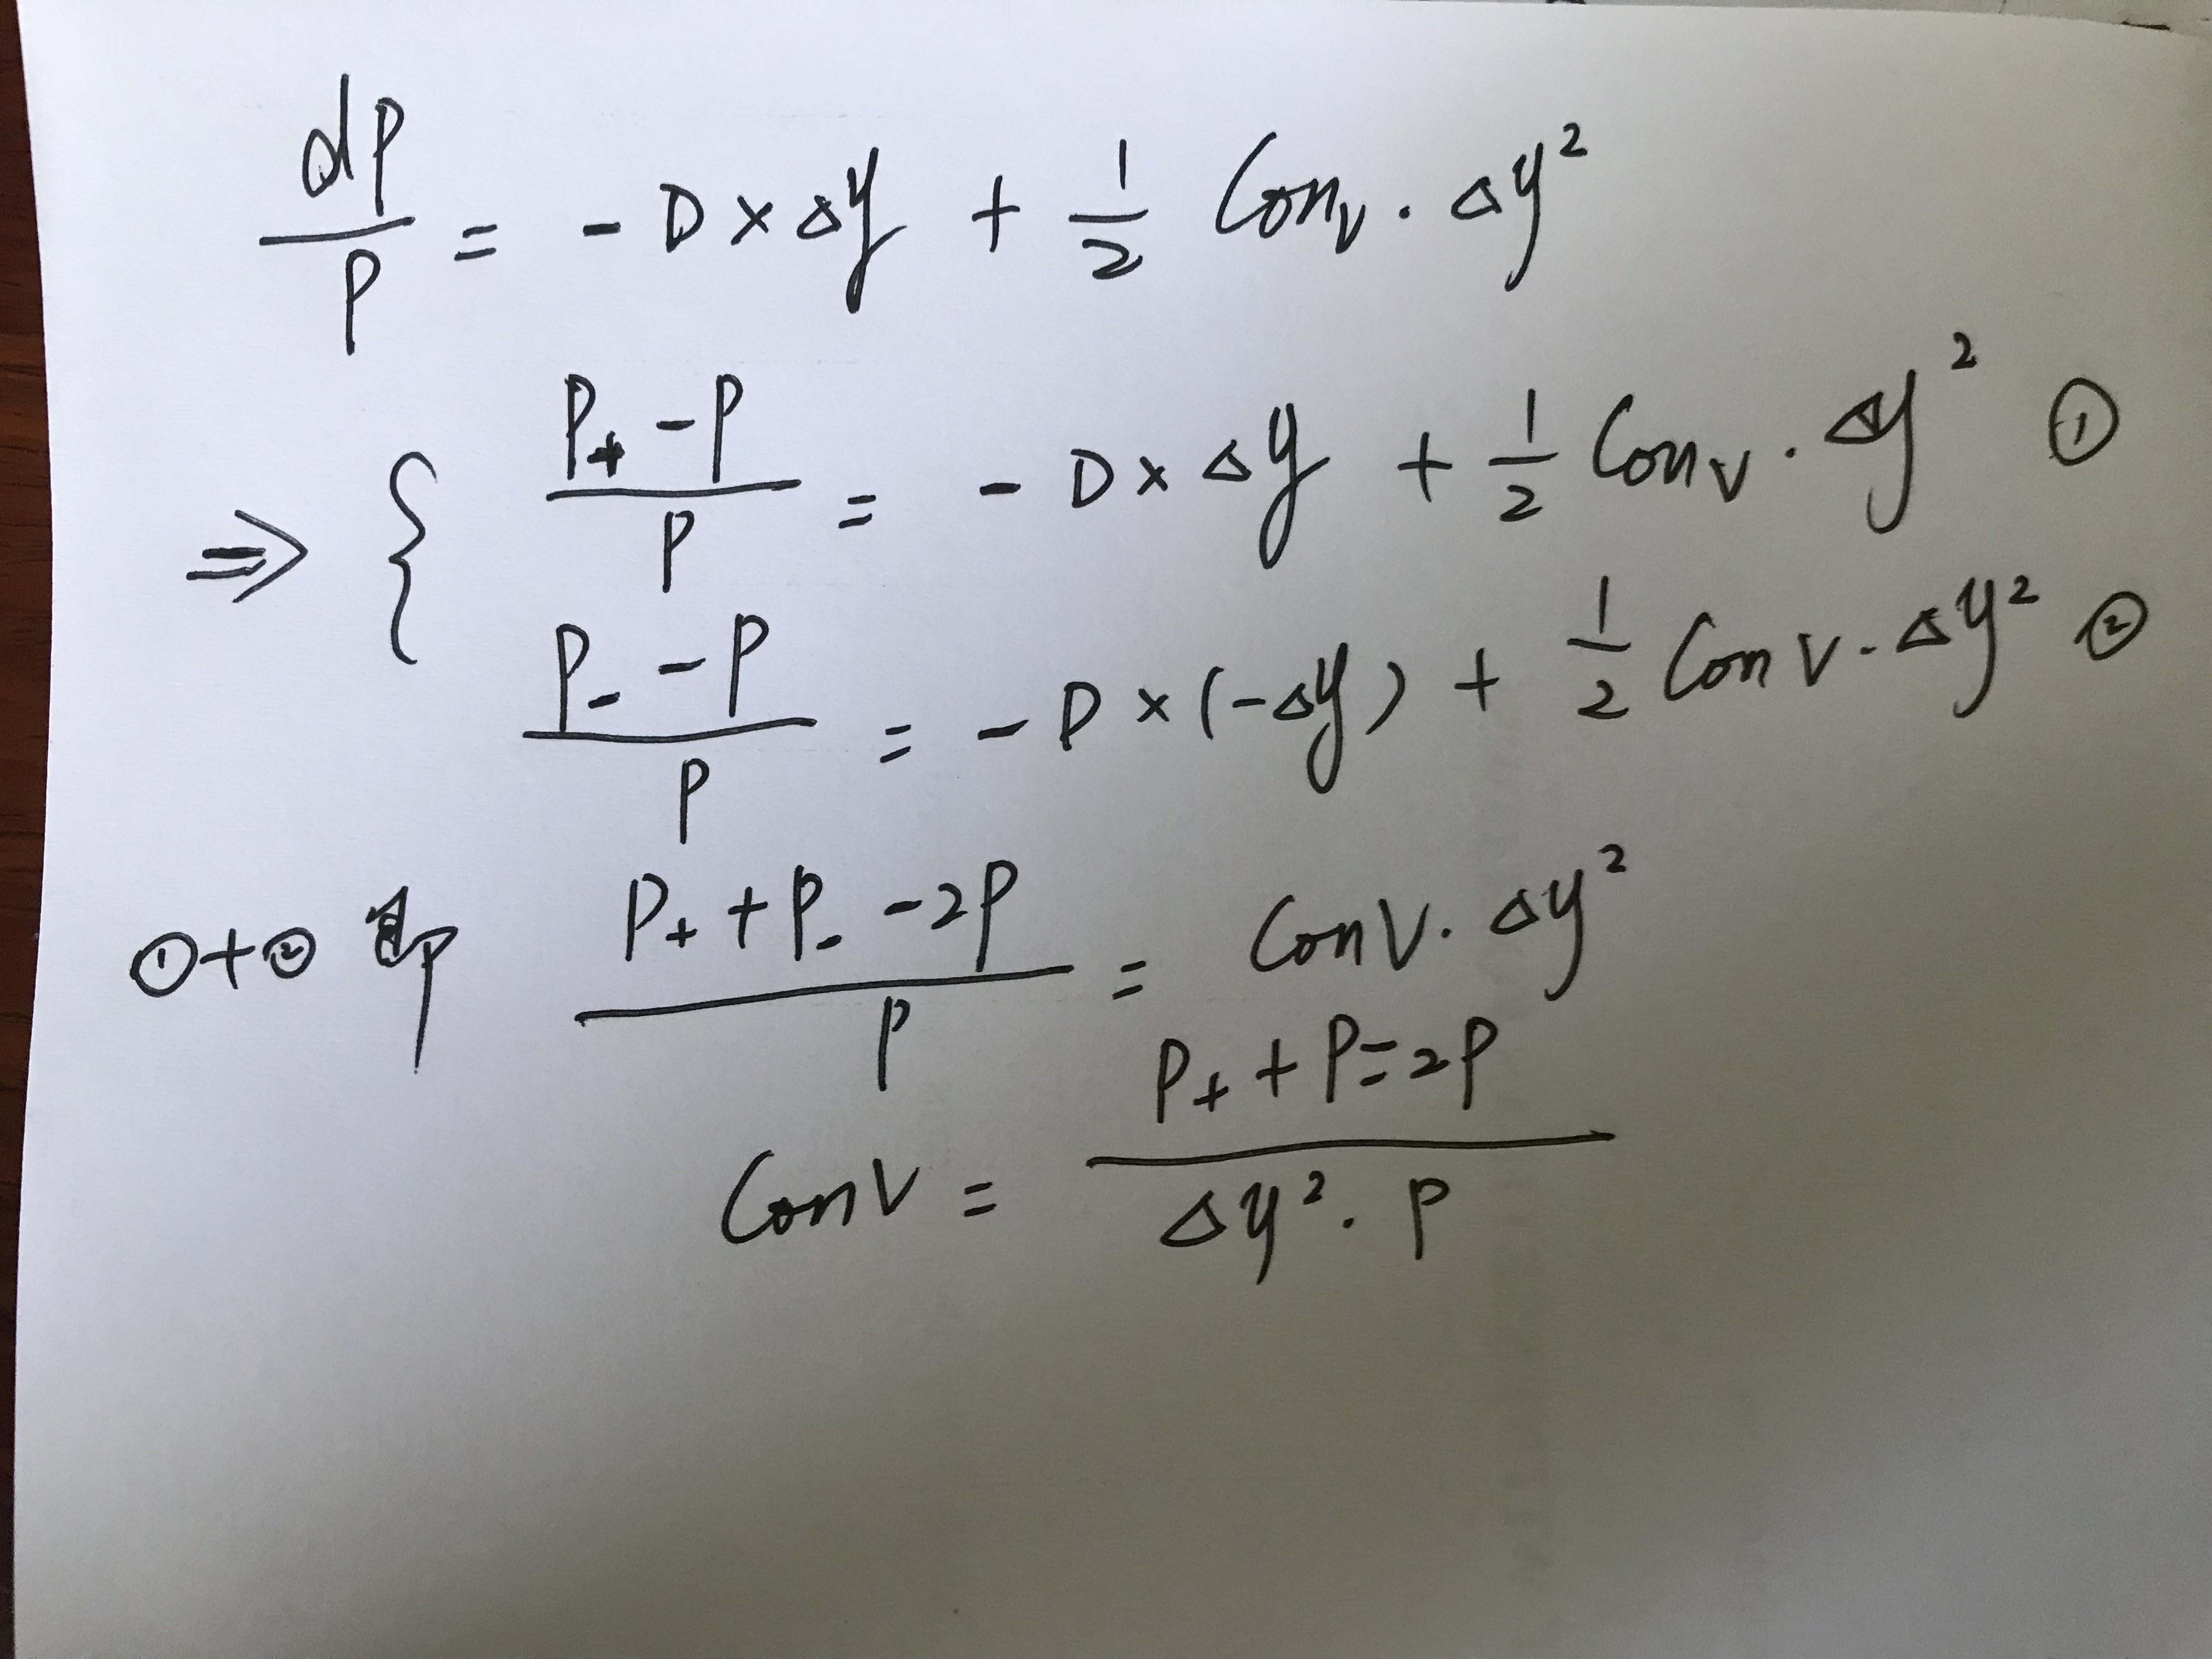 dP/P = - D × Δy + 1/2 Conv · Δy²
⇒ { (P₊ - P)/P = - D × Δy + 1/2 Conv · Δy² ①
(P₋ - P)/P = - D × (-Δy) + 1/2 Conv · Δy² ②
①+② (P₊ + P₋ - 2P)/P = Conv · Δy²
Conv = (P₊ + P₋ - 2P)/(Δy² · P)